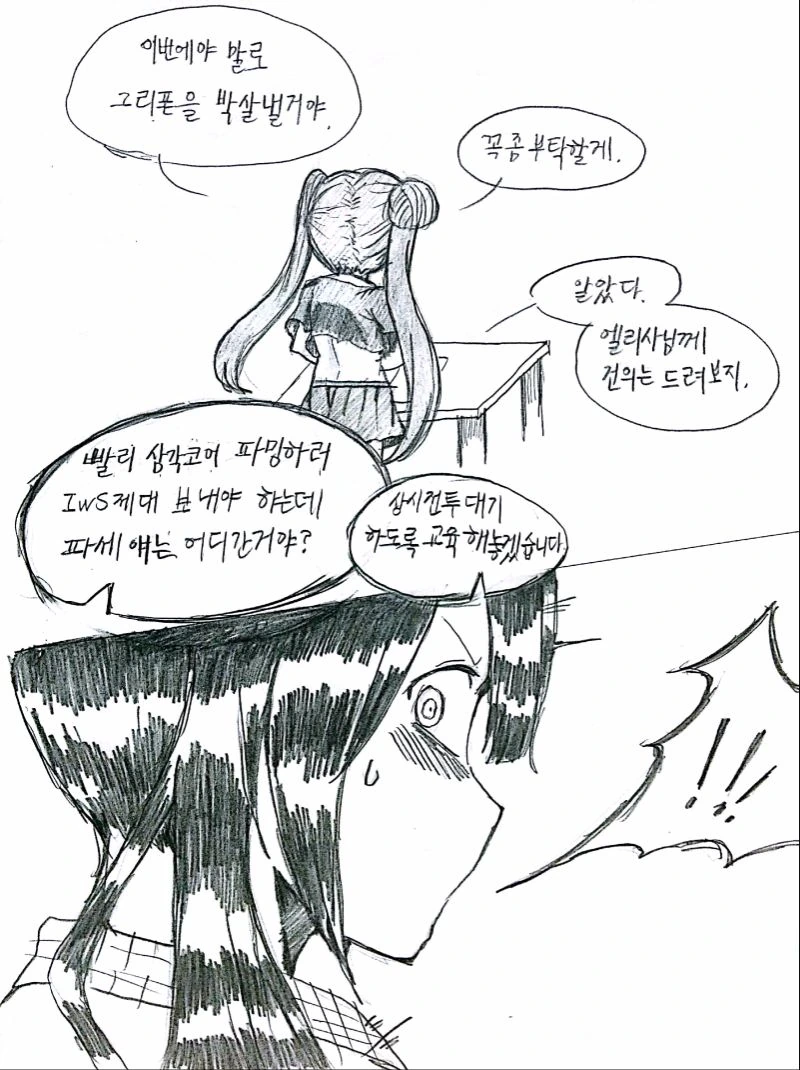 이번에야 말로
그리폰을 박살낼거야.
꼭좀부탁할게.
알았다.
엘리사님께
건의는 드려보지.
빨리 삼각코어 파밍하러
IWS제대 보내야 하는데
파세 얘는 어디간거야?
상시전투대기
하도록 교육해놓겠습니다.
!!!